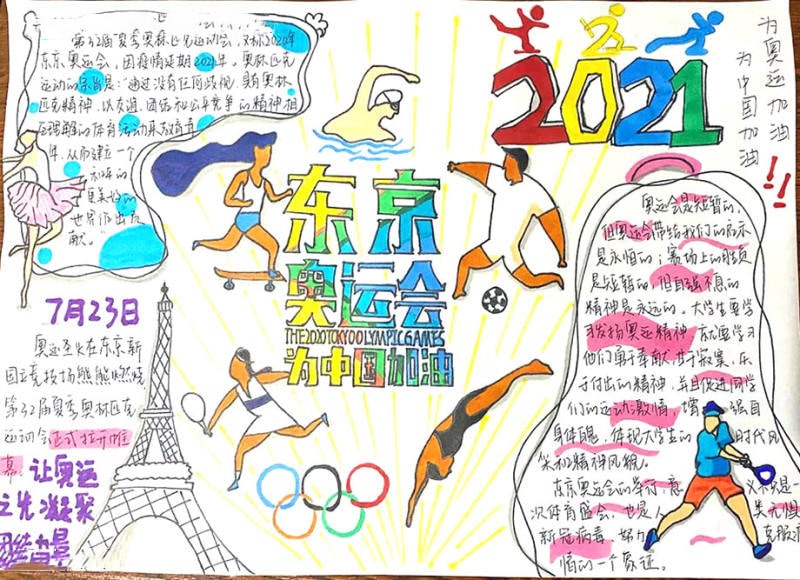 第32届夏季奥林匹克运动会，又称2020年
东京奥运会，因疫情延期2021年。奥林匹克
运动的宗旨是：“通过没有任何歧视、具有奥林
匹克精神，以友谊、团结和公平竞争的精神相
互理解的体育活动来教育青
年，从而建立一个
和平的
更美好的
世界作出贡
献。”
2021
为奥运加油
为中国加油
!!
东京
奥运会
THE2020TOKYOOLYMPICGAMES
为中国加油
7月23日
奥运圣火在东京新
国立竞技场熊熊燃烧
第32届夏季奥林匹克
运动会正式拉开帷
幕。让奥运
之光凝聚
奥运会是短暂的，
但奥运会带给我们的启示
是永恒的；赛场上的胜负
是短暂的，但自强不息的
精神是永远的。大学生要学
习发扬奥运精神，就要学习
他们勇于奉献，甘于寂寞，乐
于付出的精神，并且促进同学
们的运动激情，增 强自
身体魄，体现大学生的 时代风
采和精神风貌。
东京奥运会的举行，意 义不只是一
次体育盛会，也是人 类无惧
新冠病毒、努力 克服
情的一个象征。